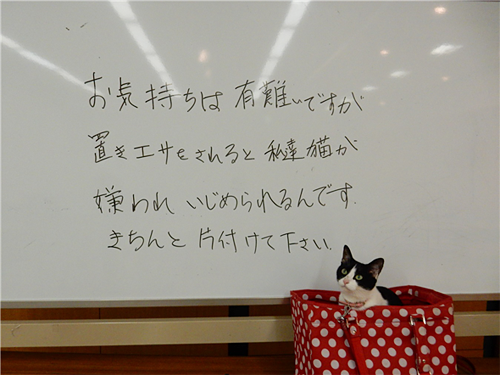 お気持ちは有難いですが
置きエサをされると私達猫が
嫌われいじめられるんです.
きちんと片付けて下さい.